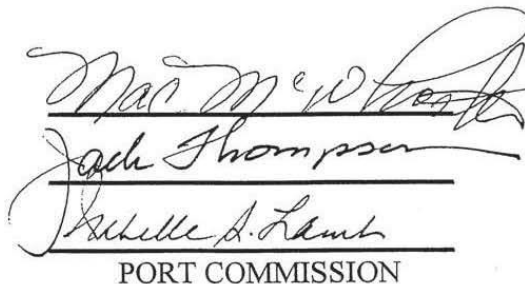 Mac McWhorter
Jack Thompson
Isabelle S. Lamb
PORT COMMISSION